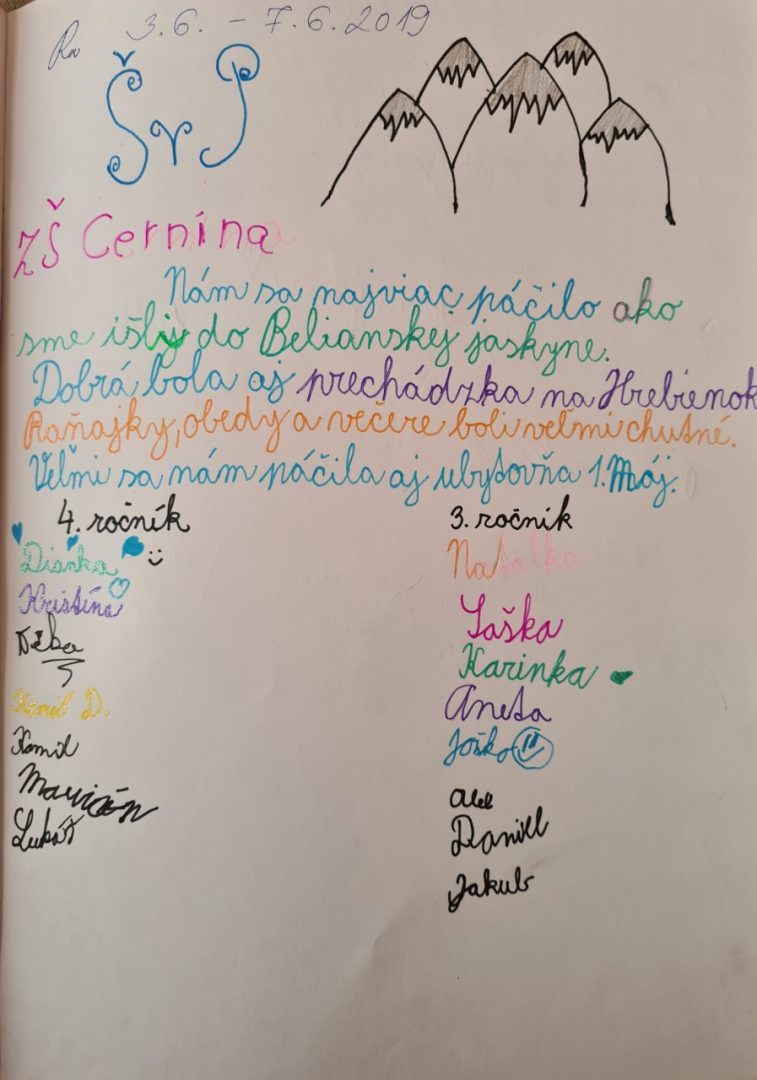 3.6. - 7.6.2019
ŠvP
ZŠ Cernina
Nám sa najviac páčilo ako
sme išly do Belianskej jaskyne.
Dobrá bola aj prechádzka na Hrebienok
Raňajky, obedy a večere boli veľmi chutné.
Veľmi sa nám páčila aj ubytovňa 1. Máj.
4. ročník
Dianka
Kristína
Kamil D.
Kamil
Marián
Lukáš
3. ročník
Natalka
Saška
Karinka
Aneta
Joško
Daniel
Jakub